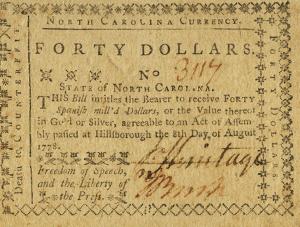 NORTH CAROLINA CURRENCY.
FORTY DOLLARS.
No 3117
STATE of NORTH CAROLINA.
THIS Bill intitles the Bearer to receive FORTY
Spanish mill'd Dollars, or the Value thereof
in Gold or Silver, agreeable to an Act of Assem-
bly passed at Hillsborough the 8th Day of August
1778.
Freedom of Speech,
and the Liberty of
the Press.
Death to Counterfeit